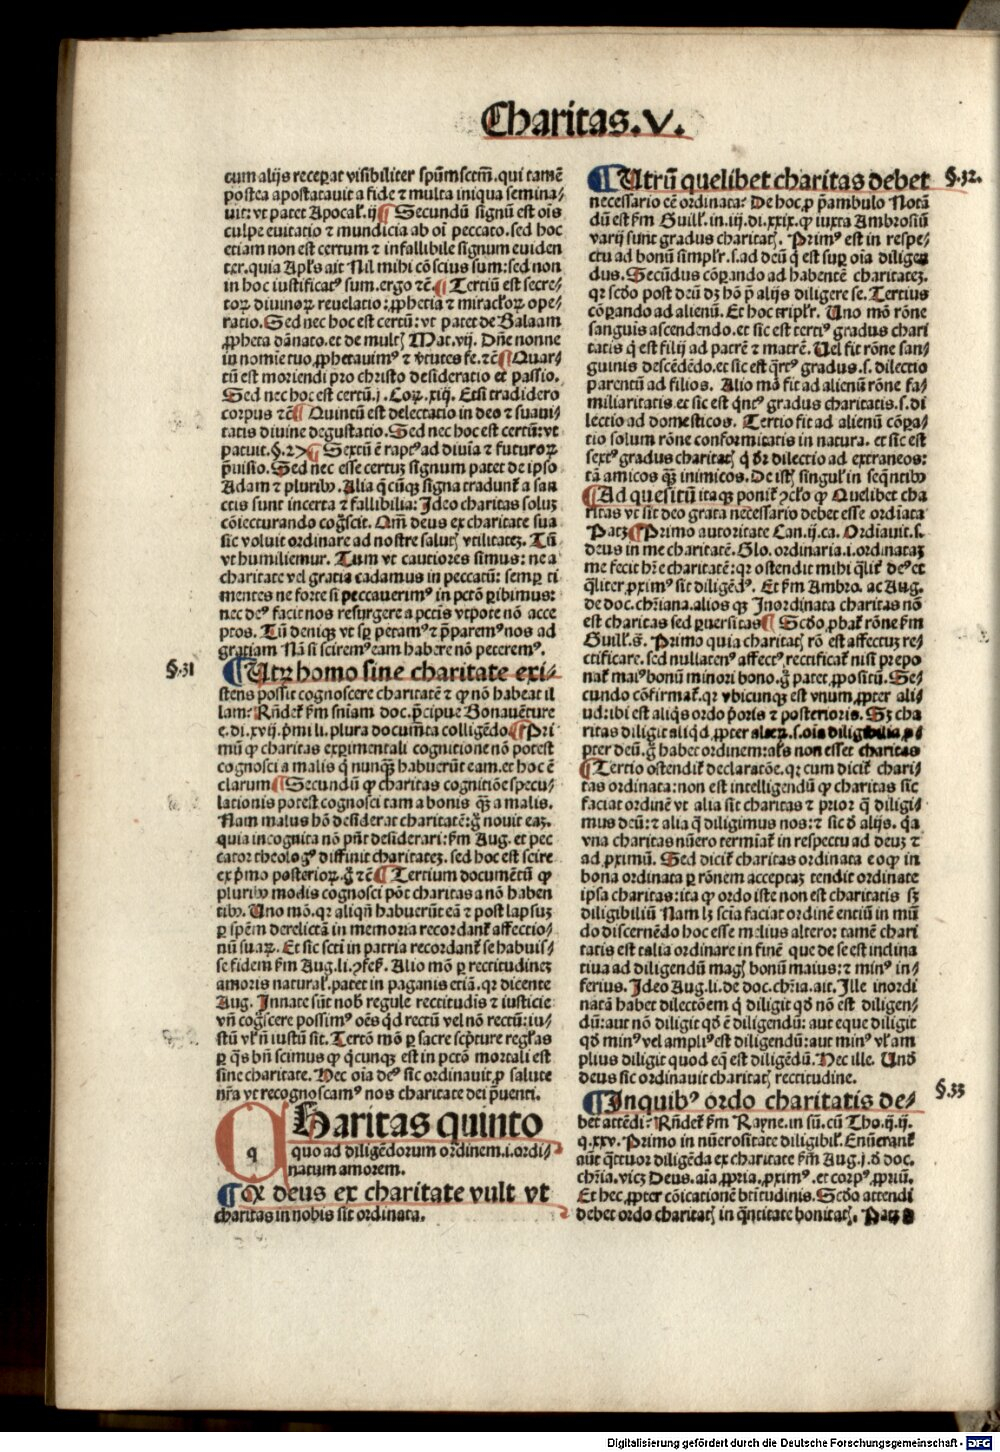 Charitas.V.
cum alijs recepat visibiliter spūmsctm̄.qui tamē
postea apostatauit a fide ⁊ multa iniqua semina/
uit: vt patet Apocal.ij Secundū signū est oīs
culpe euitatio ⁊ mundicia ab oī peccato.sed hoc
etiam non est certum ⁊ infallibile signum euiden
ter.quia Apl's ait Nil mihi cōscius sum:sed non
in hoc iustificatꝰ sum.ergo ⁊c̄. Tertiū est secre/
toꝝ diuinoꝝ reuelatio:ꝓphetia ⁊ miracl'oꝝ ope/
ratio.Sed nec hoc est certū: vt patet de Balaam
ꝓpheta dānato.et de mult̄ Mat.vij. Dn̄e nonne
in nomīe tuo ꝓphetauimꝰ ⁊ v̄tutes fe.⁊c̄ Quar/
tū est moriendi pro christo desideratio et passio.
Sed nec hoc est certū.j.Coꝝ.xiij. Etsi tradidero
corpus ⁊c̄ Quintū est delectatio in deo ⁊ suaui/
tatis diuine degustatio.Sed nec hoc est certū:vt
patuit.§.27 Sextū ē raptꝰ ad diuīa ⁊ futuroꝝ
p̄uisio.Sed nec esse certuꝫ signum patet de ipso
Adam ⁊ pluribꝰ. Alia q̄cūqꝫ signa tradunt̄ a san
ctis sunt incerta ⁊ fallibilia: Ideo charitas soluꝫ
cōiecturando coḡscit. Qm̄ deus ex charitate sua
sic voluit ordinare ad nostre salut̄ vtilitateꝫ. Tū
vt humiliemur. Tum vt cautiores simus: ne a
charitate vel gratia cadamus in peccatū: semp ti
mentes ne forte si peccauerimꝰ in pctō pibimus:
nec deꝰ facit nos resurgere a pctīs vtpote nō acce
ptos. Tū deniqꝫ vt sp petamꝰ ⁊ p̄paremꝰ nos ad
gratiam Nā si sciremꝰ eam habere nō peteremꝰ.
§.31
Utrꝫ homo sine charitate exi/
stens possit cognoscere charitatē ⁊ ꝙ nō habeat il
lam: Rn̄det̄ ẜm sniam doc.p̄cipue Bonauēture
e.di.xvij.p̄mi li.plura documēta colligēdo Pri
mū ꝙ charitas expimentali cognitione nō potest
cognosci a malis q̄ nunqꝫ habuerūt eam.et hoc ē
clarum Secundū ꝙ charitas cognitiōe specu/
lationis potest cognosci tam a bonis qꝫ a malis.
Nam malus hō desiderat charitatē:g̊ nouit eaꝫ.
quia incognita nō pn̄t desiderari:ẜm Aug.et pec
cator theologꝰ diffinit charitateꝫ.sed hoc est scire
ex p̄mo posterioꝝ.g̊ ⁊c̄ Tertium documētū ꝙ
pluribꝰ modis cognosci pōt charitas a nō haben
tibꝰ. Uno mō.qꝛ aliqn̄ habuerūt eā ⁊ post lapsuꝫ
p spēm derelictā in memoria recordant̄ affectio/
nū suaꝝ. Et sic scti in patria recordant̄ se habuis/
se fidem ẜm Aug.li.ꝯfeß. Alio mō p rectitudineꝫ
amoris natural'.patet in paganis etiā.qꝛ dicente
Aug. Innate sūt nob̄ regule rectitudis ⁊ iusticie
vn̄ coḡscere possimꝰ oēs qd rectū vel nō rectū:iu/
stū vl' nō iustū sit. Tertō mō p sacre scp̄ture regl'as
p q̄s bn̄ scimus ꝙ q̄cunqꝫ est in pctō mortali est
sine charitate. Hec oīa deꝰ sic ordinauit ꝓ salute
nr̄a vt recognoscamꝰ nos charitate dei p̄uenti.
q
Haritas quinto
quo ad diligēdorum ordinem.i.ordi/
natum amorem.
Qꝛ deus ex charitate vult vt
charitas in nobis sit ordinata.
Utrū quelibet charitas debet
§.32.
necessario eē ordinata: De hoc ꝓ p̄ambulo Notā
dū est ẜm Guilł.in.iij.di.xxix.ꝙ iuxta Ambrosiū
varij sunt gradus charitat̄. Primꝰ est in respe/
ctu ad bonū simplr̄.s.ad deū q̄ est sup oīa diligen
dus. Secūdus cōpando ad habentē charitateꝫ.
qꝛ scdo post deū dꝫ hō p̄ alijs diligere se. Tertius
cōpando ad alienū. Et hoc triplr̄. Uno mō rōne
sanguis ascendendo.et sic est tertiꝰ gradus chari
tatis q̄ est filij ad patrē ⁊ matrē. Uel fit rōne san/
guinis descēdēdo.et sic est q̄rtꝰ gradus.s.dilectio
parentū ad filios. Alio mō fit ad alienū rōne fa/
miliaritatis.et sic est qn̄tꝰ gradus charitatis.s.di
lectio ad domesticos. Tertio fit ad alienū cōpa/
tio solum rōne conformitatis in natura.et sic est
sextꝰ gradus charitat̄ q̄ dr̄ dilectio ad extraneos:
tā amicos qꝫ inimicos. De ist̄ singul' in seqn̄tibꝰ
Ad quesitū itaqꝫ ponit̄ ꝯclo ꝙ Quelibet cha
ritas vt sit deo grata necessario debet esse ordīata
Patꝫ Primo autoritate Can.ij.ca. Ordīauit.s.
deus in me charitatē. Glo.ordinaria.i.ordinataꝫ
me fecit h̄re charitatē: qꝛ ostendit mihi q̄lit̄ deꝰ et
q̄liter ꝓximꝰ sit diligēdꝰ. Et ẜm Ambro.ac Aug.
de doc.chr̄iana.alios qꝫ Inordinata charitas nō
est charitas sed puersitas Scdo ꝓbat̄ rōne ẜm
Guilł.s. Primo quia charitat̄ rō est affectuꝫ re/
ctificare.sed nullatenꝰ affectꝰ rectificat̄ nisi p̄epo
nat̄ maiꝰ bonū minori bono.g̊ patet ꝓpositū. Se/
cundo cōfirmat̄.qꝛ vbicunqꝫ est vnum ꝓpter ali/
ud:ibi est aliqs ordo p̄oris ⁊ posterioris. Sꝫ cha
ritas diligit aliqd ꝓpter alteꝝ.s.oīa diligibilia ꝓ/
pter deū.g̊ habet ordinem:als non esset charitas
Tertio ostendit̄ declaratōe.qꝛ cum dicit̄ chari/
tas ordinata:non est intelligendū ꝙ charitas sic
faciat ordinē vt alia sit charitas ⁊ prior q̄ diligi/
mus deū:⁊ alia q̄ diligimus nos:⁊ sic d̄ alijs. q̄a
vna charitas nūero termīat̄ in respectu ad deuꝫ ⁊
ad ꝓximū. Sed dicit̄ charitas ordinata eo ꝙ in
bona ordinata p rōnem acceptaꝫ tendit ordinate
ipsa charitas:ita ꝙ ordo iste non est charitatis sꝫ
diligibiliū Nam lꝫ scīa faciat ordinē entiū in mū
do discernēdo hoc esse melius altero: tamē chari
tatis est talia ordinare in finē que de se est inclina
tiua ad diligendū maḡ bonū maius:⁊ minꝰ in/
ferius. Ideo Aug.li.de doc.chr̄ia.ait. Ille inordi
natā habet dilectōem q̄ diligit qd nō est diligen/
dū:aut nō diligit qd ē diligendū: aut eque diligit
qd minꝰ vel ampliꝰ est diligendū:aut minꝰ vl' am
plius diligit quod eq̄ est diligēdū. Hec ille. Und
deus sic ordinauit charitat̄ rectitudine.
§.33
Inquibꝰ ordo charitatis de/
bet attēdi: Rn̄det̄ ẜm Rayne.in sū.cū Tho.ij.ij.
q.xxv. Primo in nūerositate diligibil'. Enūerant̄
aūt q̄ttuor diligēda ex charitate ẜm Aug.j.d̄ doc.
chr̄ia.vicꝫ Deus.aīa ꝓpria.ꝓximꝰ.et corpꝰ ꝓpriū.
Et hec ꝓpter cōicationē btitudinis. Scdo attendi
debet ordo charitat̄ in q̄ntitate bonitat̄. Patꝫ